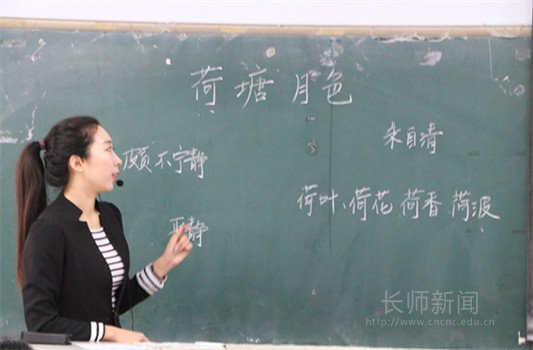 荷塘月色
朱自清
颇不宁静
荷叶、荷花 荷香 荷波
平静
长师新闻
http://www.cncnc.edu.cn